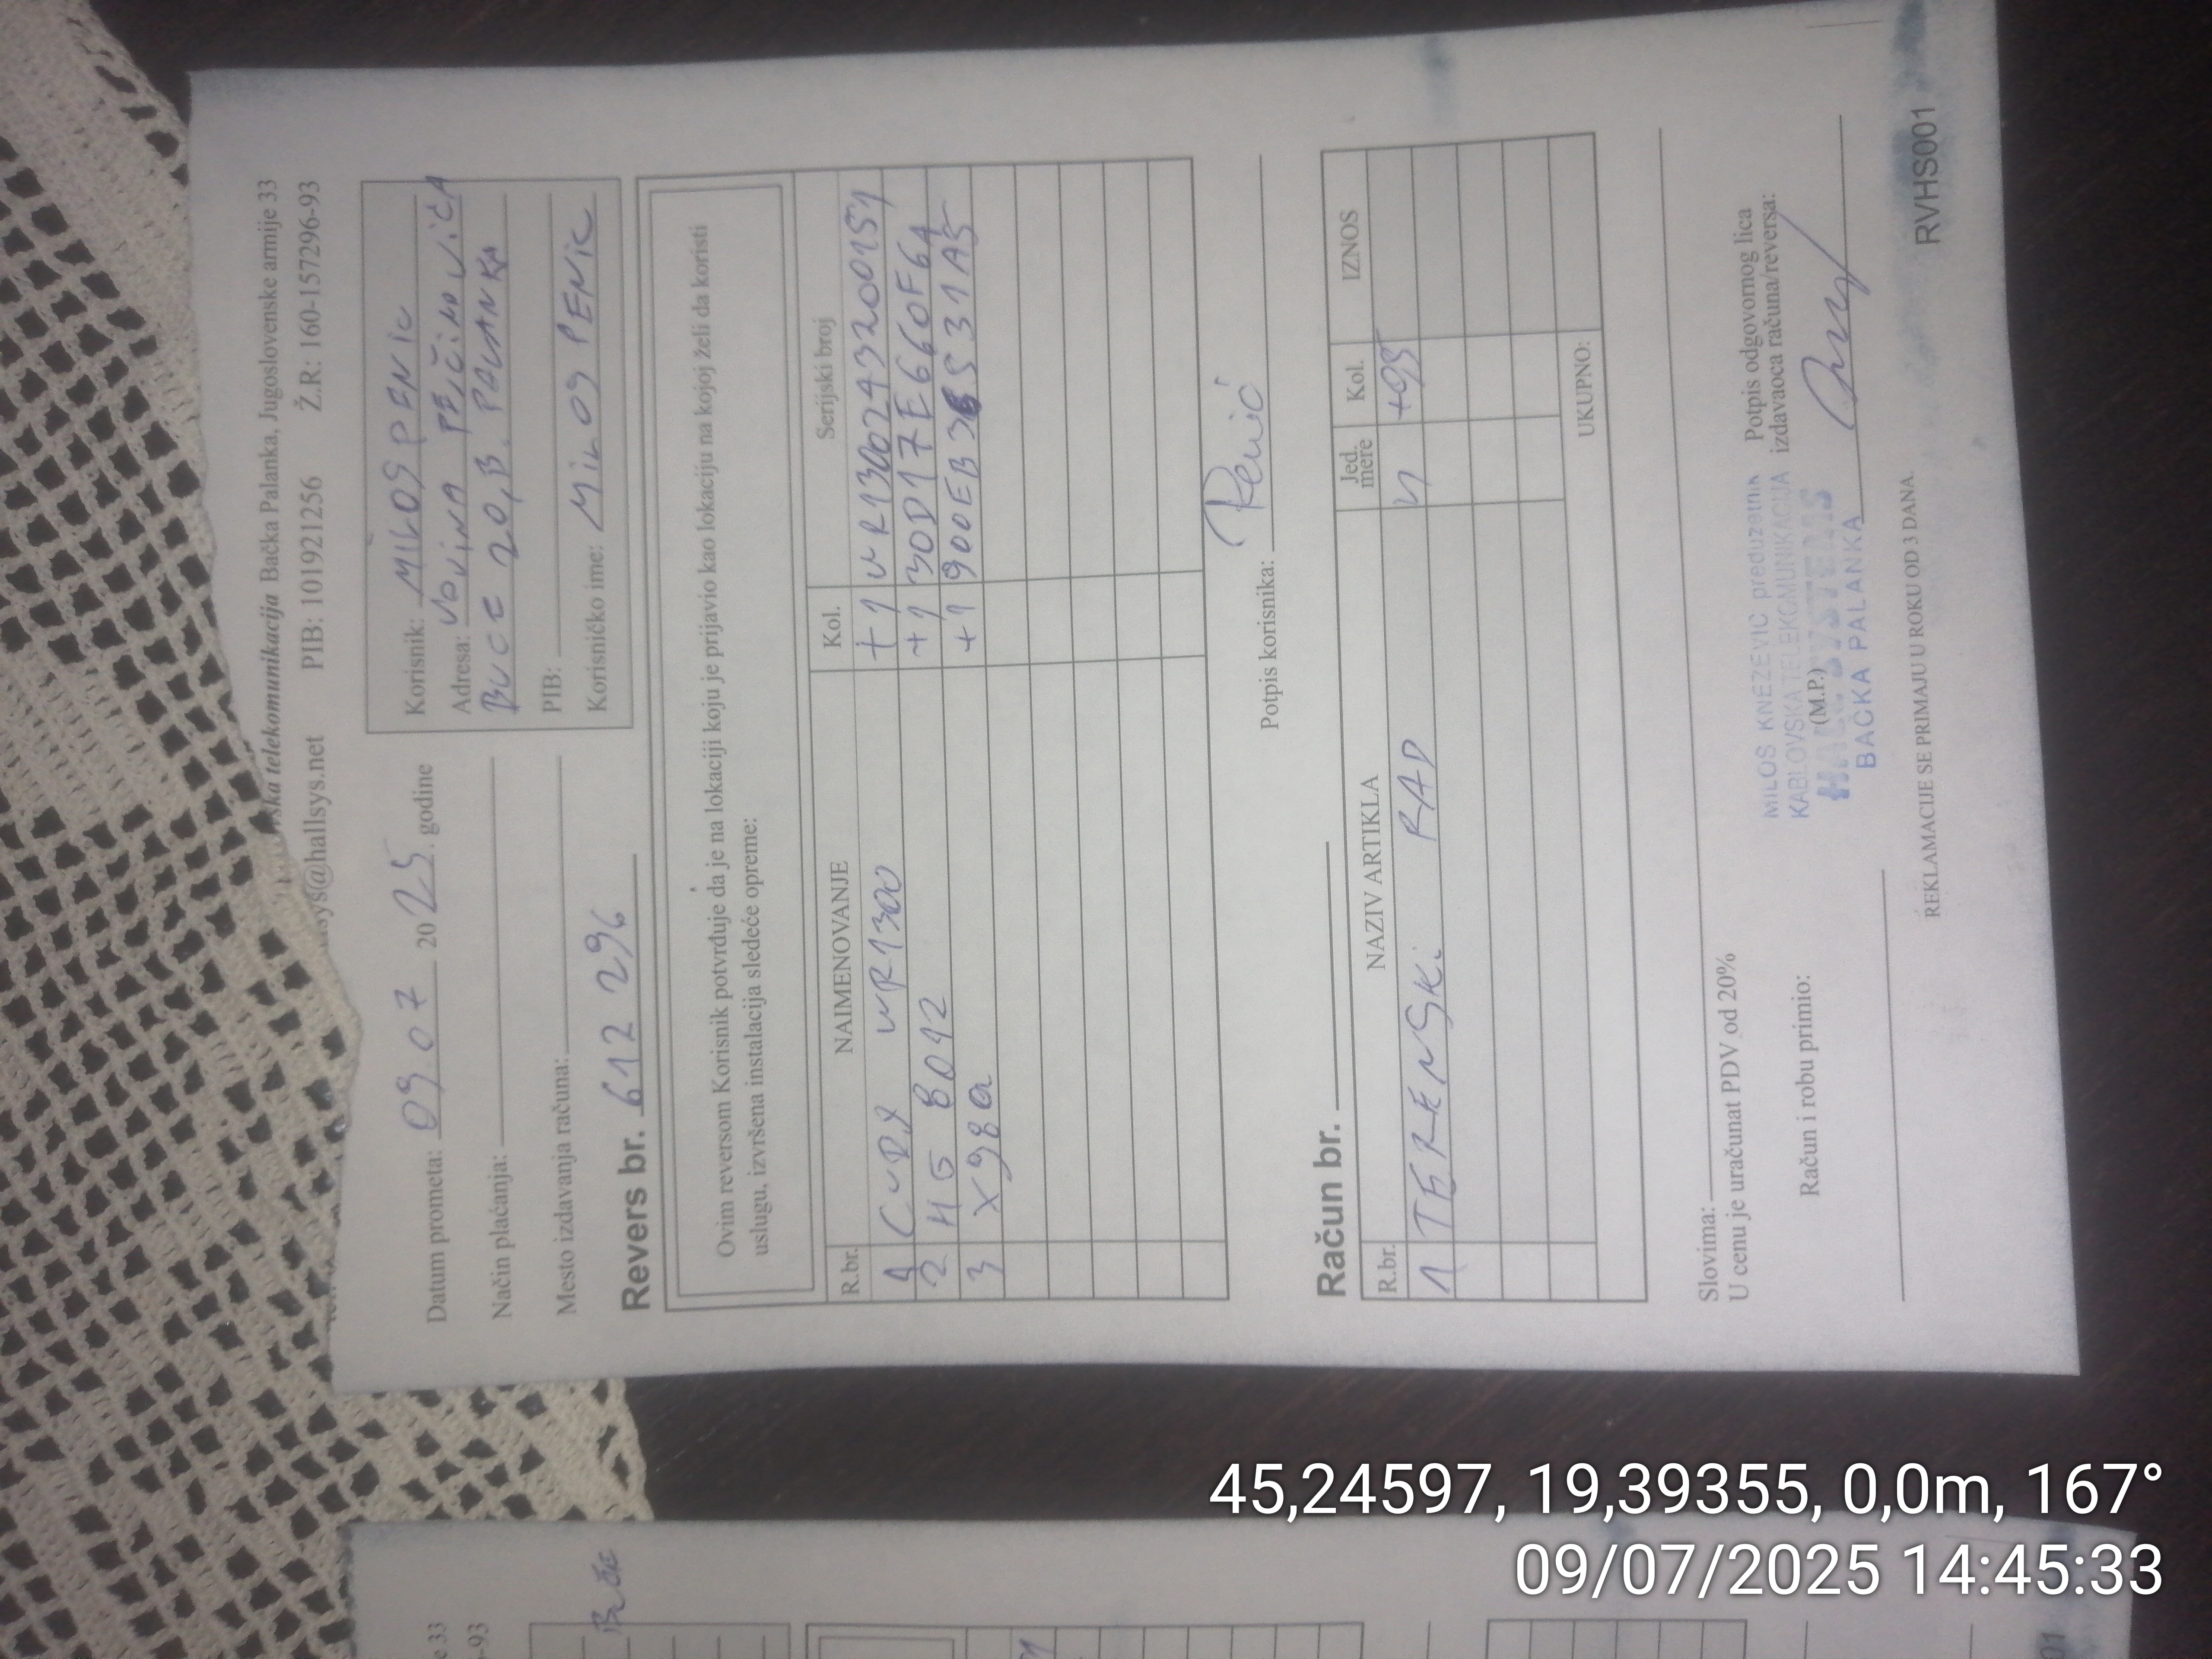 telekomunikacija Bačka Palanka, Jugoslovenske armije 33
@hallsys.net PIB: 101921256 Ž.R: 160-157296-93
Datum prometa: 09 07 2025. godine
Način plaćanja:
Mesto izdavanja računa:
Korisnik: MILOŠ PENIC
Adresa:
20, B. PALANKA
PIB:
Korisničko ime: MILOS PENIC
Revers br. 612 296
Ovim reversom Korisnik potvrđuje da je na lokaciji koju je prijavio kao lokaciju na kojoj želi da koristi
uslugu, izvršena instalacija sledeće opreme:
R.br. NAIMENOVANJE Kol. Serijski broj
1 CUDY WR1300 +1
2 HG 8012 +1 30D17E660F64
3 X98Q +1
Potpis korisnika: Penić
Račun br.
R.br. NAZIV ARTIKLA Jed. mere Kol. IZNOS
1 TERENSKI RAD H +95
UKUPNO:
Slovima:
U cenu je uračunat PDV od 20%
Račun i robu primio:
MILOŠ KNEŽEVIĆ preduzetnik
KABLOVSKA TELEKOMUNIKACIJA
(M.P.)
BAČKA PALANKA
Potpis odgovornog lica
izdavaoca računa/reversa:
REKLAMACIJE SE PRIMAJU U ROKU OD 3 DANA.
RVHS001
e 33
-93
01
45,24597, 19,39355, 0,0m, 167°
09/07/2025 14:45:33